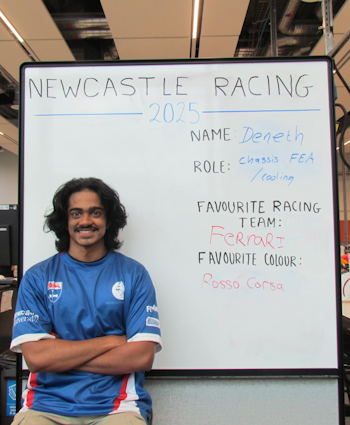 NEWCASTLE RACING
2025
NAME Deneth
ROLE: Chassis FEA
/cooling
FAVOURITE RACING
TEAM:
FeRRARI
FAVOURITE COLOUR:
Rosso Corsa